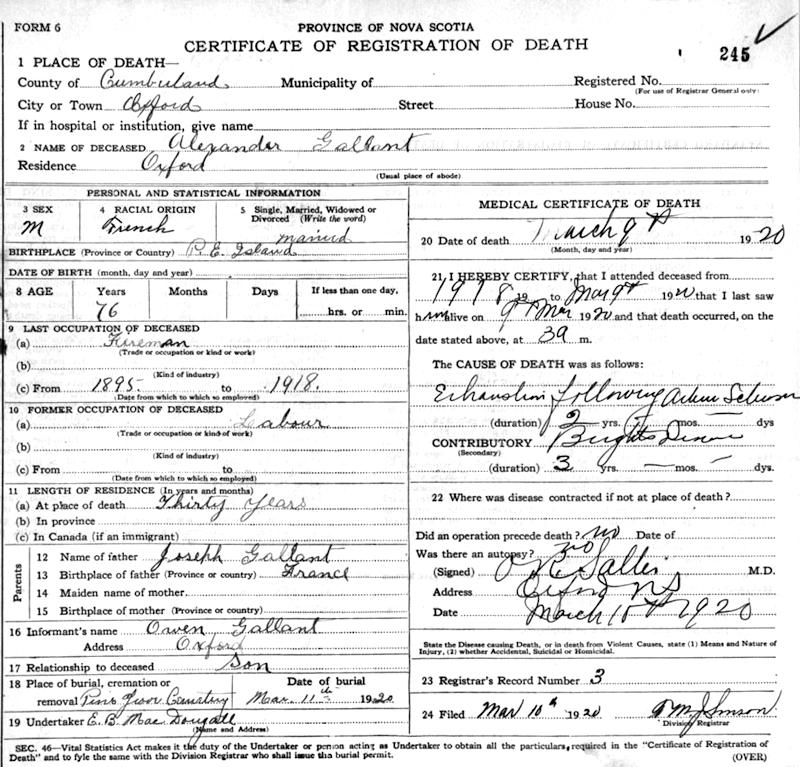 FORM 6
PROVINCE OF NOVA SCOTIA
CERTIFICATE OF REGISTRATION OF DEATH
245
1 PLACE OF DEATH—
County of Cumberland Municipality of Registered No.
(For use of Registrar General only)
City or Town Oxford Street House No.
If in hospital or institution, give name
2 NAME OF DECEASED Alexander Gallant
Residence Oxford
(Usual place of abode)
PERSONAL AND STATISTICAL INFORMATION
3 SEX 4 RACIAL ORIGIN 5 Single, Married, Widowed or Divorced (Write the word)
M French married
BIRTHPLACE (Province or Country) P. E. Island
DATE OF BIRTH (month, day and year)
8 AGE Years Months Days If less than one day,
76 hrs. or min.
9 LAST OCCUPATION OF DECEASED
(a) Fireman
(Trade or occupation or kind or work)
(b)
(Kind of industry)
(c) From 1895 to 1918.
(Date from which to which so employed)
10 FORMER OCCUPATION OF DECEASED
(a) Labour
(Trade or occupation or kind of work)
(b)
(Kind of industry)
(c) From to
(Date from which to which so employed)
11 LENGTH OF RESIDENCE (In years and months)
(a) At place of death Thirty Years
(b) In province
(c) In Canada (if an immigrant)
Parents
12 Name of father Joseph Gallant
13 Birthplace of father (Province or country) France
14 Maiden name of mother
15 Birthplace of mother (Province or country)
16 Informant's name Owen Gallant
Address Oxford
17 Relationship to deceased Son
18 Place of burial, cremation or Date of burial
removal Pine Cemetery Mar. 11th 1920
19 Undertaker E. B. MacDougall
(Name and Address)
MEDICAL CERTIFICATE OF DEATH
20 Date of death March 9th 1920
(Month, day and year)
21 I HEREBY CERTIFY, that I attended deceased from
1918 19 to Mar 9th 1920 that I last saw
him alive on 9th Mar 1920 and that death occurred, on the
date stated above, at m.
The CAUSE OF DEATH was as follows:
Exhaustion following
(duration) 2 yrs. — mos. — dys
CONTRIBUTORY Brights Disease
(Secondary)
(duration) 3 yrs. — mos. — dys.
22 Where was disease contracted if not at place of death?
Did an operation precede death? no Date of
Was there an autopsy? no
(Signed) M.D.
Address Oxford NS
Date March 10th 1920
State the Disease causing Death, or in death from Violent Causes, state (1) Means and Nature of
Injury, (2) whether Accidental, Suicidal or Homicidal.
23 Registrar's Record Number 3
24 Filed Mar 10th 1920 Johnson
Division Registrar
SEC. 46—Vital Statistics Act makes it the duty of the Undertaker or person acting as Undertaker to obtain all the particulars, required in the "Certificate of Registration of
Death" and to fyle the same with the Division Registrar who shall issue the burial permit. (OVER)